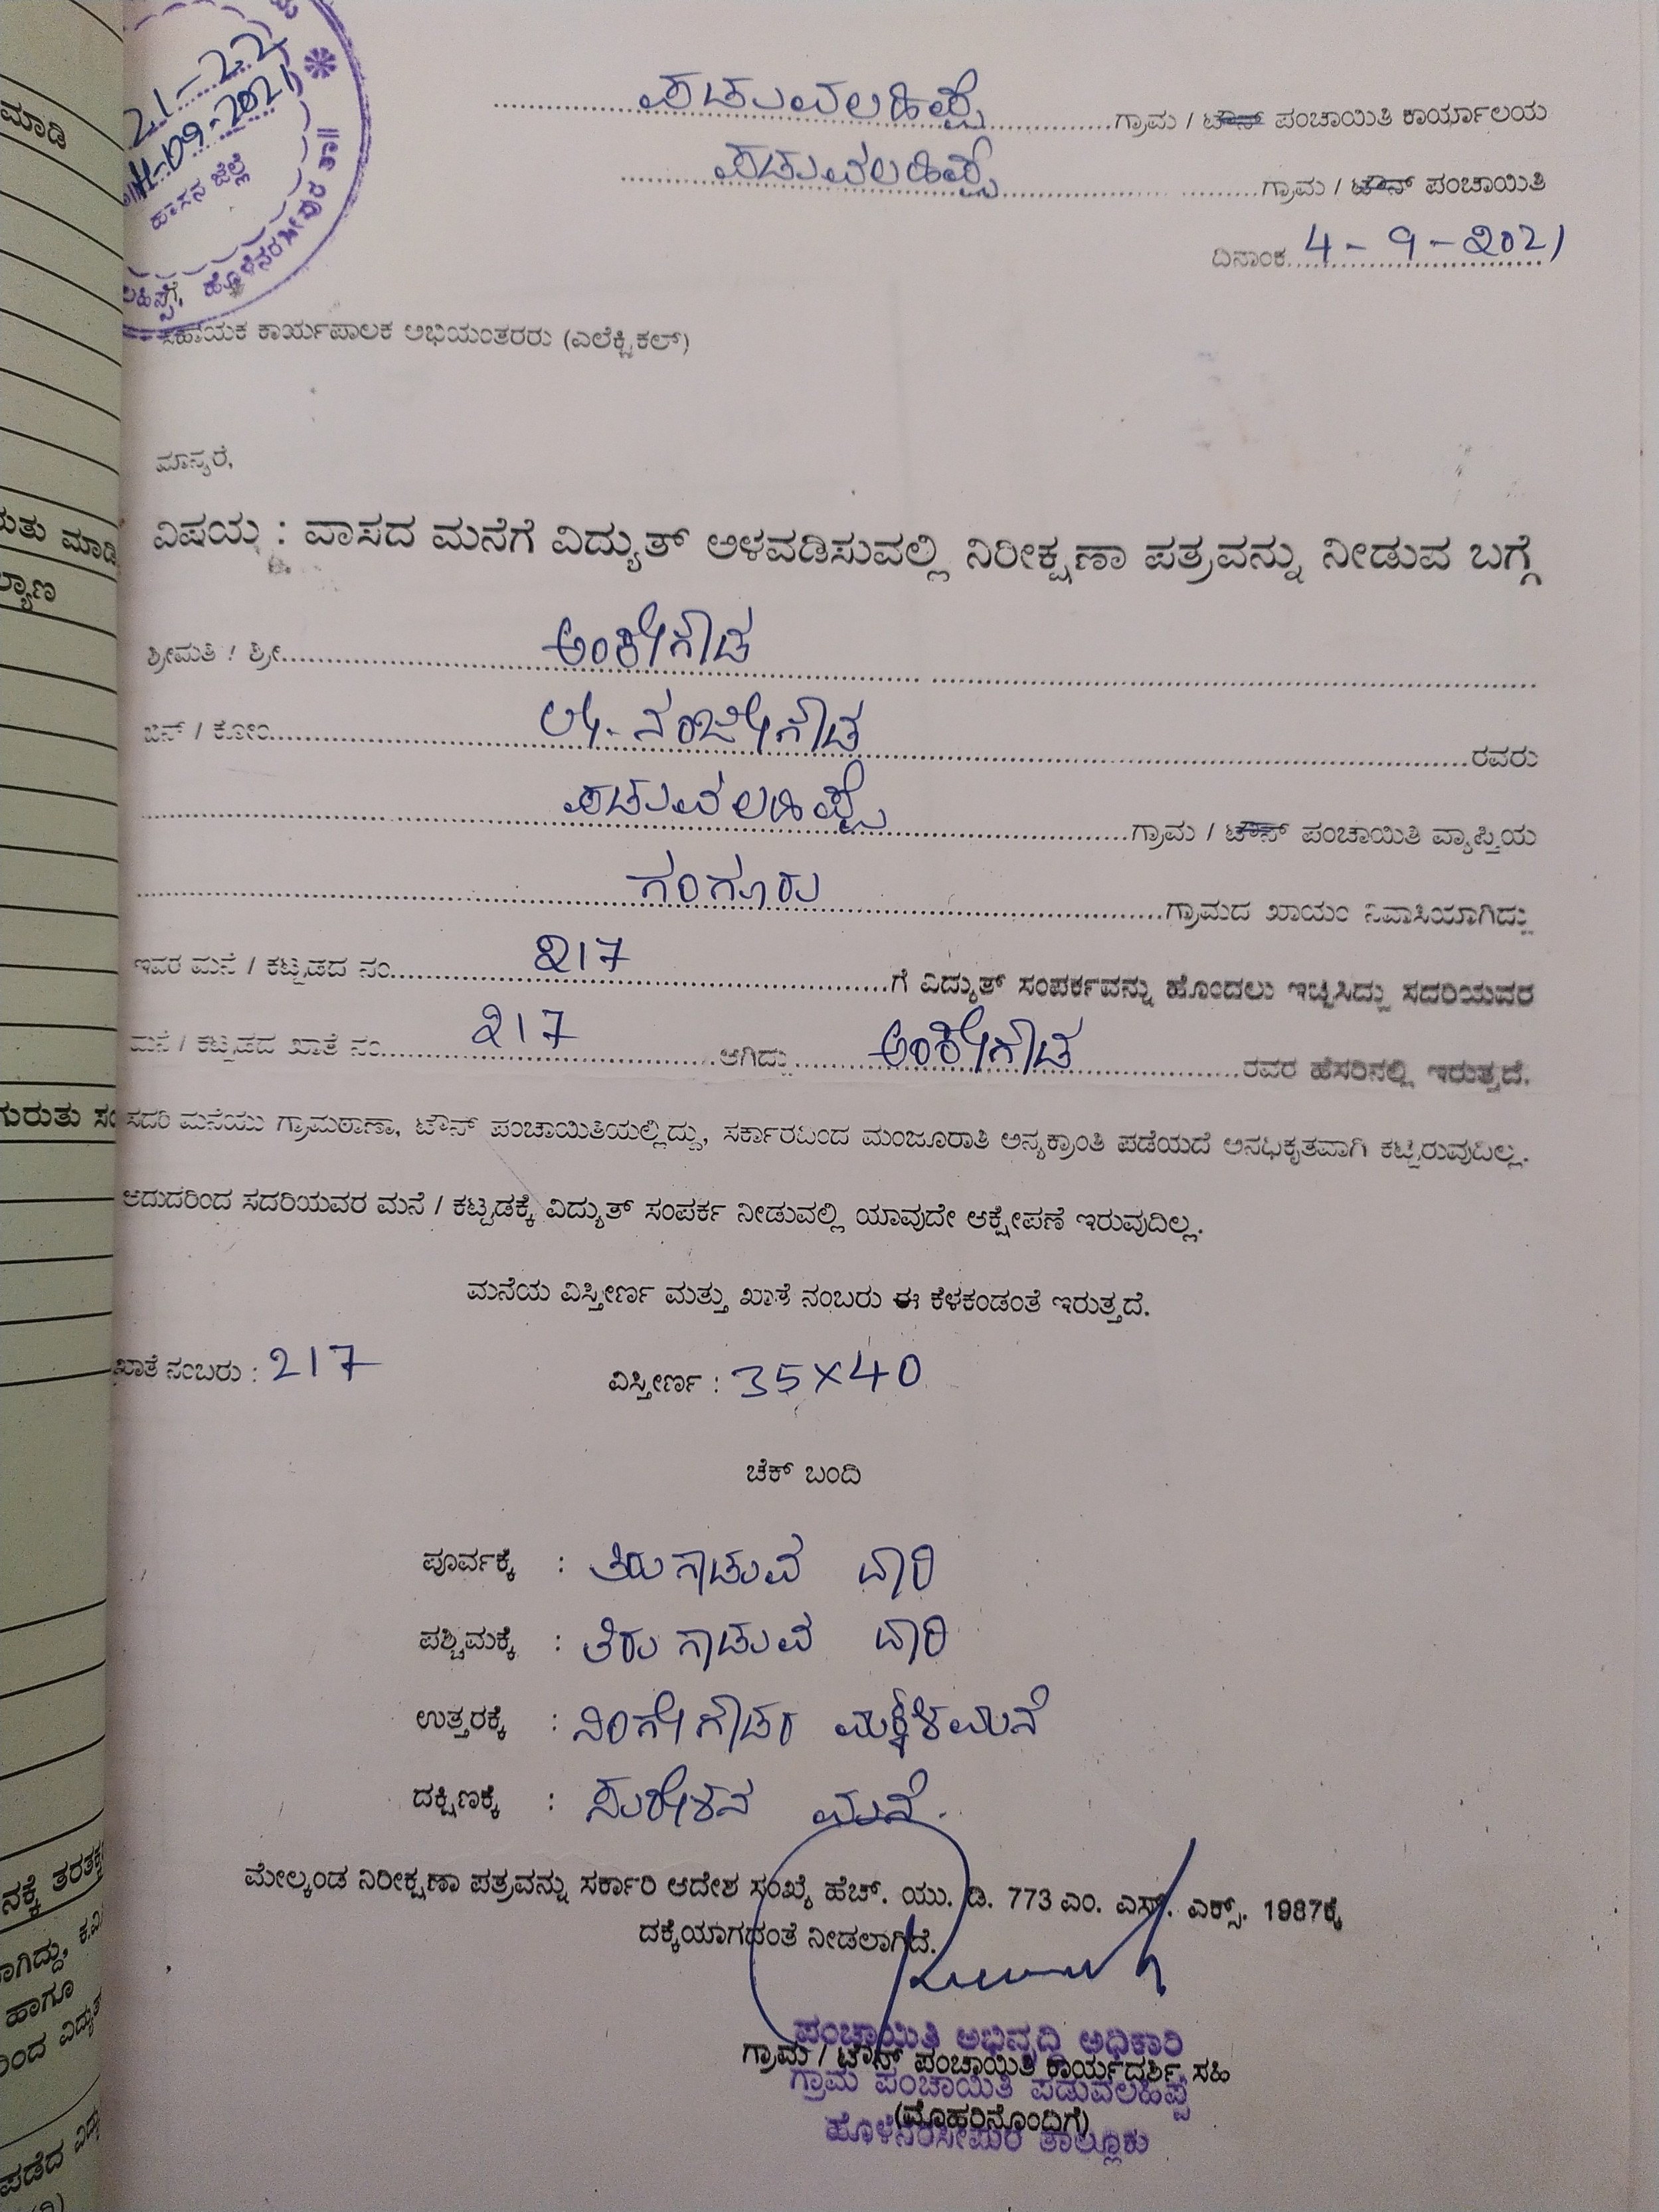 ಮಾಡಿ
ುತು ಮಾಡಿ
ಲ್ಯಾಣ
ಗುರುತು ಸಂ
ನಕ್ಕೆ ತರತಕ್ಕ
ಾಗಿದ್ದು, ಕ.ವಿ
ಹಾಗೂ
ರಿಂದ ವಿದ್ಯುತ್
ಪಡೆದ ವಿದ್ಯು
21-22
11-09-2021
ಹಾಸನ ಜಿಲ್ಲೆ
ಲಹಿಪ್ಪೆ, ಹೊಳೆನರಸೀಪುರ ತಾ||
ಪಡುವಲಹಿಪ್ಪೆ ಗ್ರಾಮ / ಟೌನ್ ಪಂಚಾಯಿತಿ ಕಾರ್ಯಾಲಯ
ಪಡುವಲಹಿಪ್ಪೆ ಗ್ರಾಮ / ಟೌನ್ ಪಂಚಾಯಿತಿ
ದಿನಾಂಕ 4-9-2021
ಸಹಾಯಕ ಕಾರ್ಯಪಾಲಕ ಅಭಿಯಂತರರು (ಎಲೆಕ್ಟ್ರಿಕಲ್)
ಮಾನ್ಯರೆ,
ವಿಷಯ : ವಾಸದ ಮನೆಗೆ ವಿದ್ಯುತ್ ಅಳವಡಿಸುವಲ್ಲಿ ನಿರೀಕ್ಷಣಾ ಪತ್ರವನ್ನು ನೀಡುವ ಬಗ್ಗೆ
ಶ್ರೀಮತಿ / ಶ್ರೀ ಅಂಕೇಗೌಡ
ಬಿನ್ / ಕೋಂ ಲೇ. ನಂಜೇಗೌಡ ರವರು
ಪಡುವಲಹಿಪ್ಪೆ ಗ್ರಾಮ / ಟೌನ್ ಪಂಚಾಯಿತಿ ವ್ಯಾಪ್ತಿಯ
ಗಂಗೂರು ಗ್ರಾಮದ ಖಾಯಂ ನಿವಾಸಿಯಾಗಿದ್ದು
ಇವರ ಮನೆ / ಕಟ್ಟಡದ ನಂ 217 ಗೆ ವಿದ್ಯುತ್ ಸಂಪರ್ಕವನ್ನು ಹೊಂದಲು ಇಚ್ಚಿಸಿದ್ದು ಸದರಿಯವರ
ಮನೆ / ಕಟ್ಟಡದ ಖಾತೆ ನಂ 217 ಆಗಿದ್ದು ಅಂಕೇಗೌಡ ರವರ ಹೆಸರಿನಲ್ಲಿ ಇರುತ್ತದೆ.
ಸದರಿ ಮನೆಯು ಗ್ರಾಮಠಾಣಾ, ಟೌನ್ ಪಂಚಾಯಿತಿಯಲ್ಲಿದ್ದು, ಸರ್ಕಾರದಿಂದ ಮಂಜೂರಾತಿ ಅನ್ಯಕ್ರಾಂತಿ ಪಡೆಯದೆ ಅನಧಿಕೃತವಾಗಿ ಕಟ್ಟಿರುವುದಿಲ್ಲ.
ಆದುದರಿಂದ ಸದರಿಯವರ ಮನೆ / ಕಟ್ಟಡಕ್ಕೆ ವಿದ್ಯುತ್ ಸಂಪರ್ಕ ನೀಡುವಲ್ಲಿ ಯಾವುದೇ ಆಕ್ಷೇಪಣೆ ಇರುವುದಿಲ್ಲ.
ಮನೆಯ ವಿಸ್ತೀರ್ಣ ಮತ್ತು ಖಾತೆ ನಂಬರು ಈ ಕೆಳಕಂಡಂತೆ ಇರುತ್ತದೆ.
ಖಾತೆ ನಂಬರು : 217 ವಿಸ್ತೀರ್ಣ : 35X40
ಚೆಕ್ ಬಂದಿ
ಪೂರ್ವಕ್ಕೆ : ತಿರುಗಾಡುವ ದಾರಿ
ಪಶ್ಚಿಮಕ್ಕೆ : ತಿರುಗಾಡುವ ದಾರಿ
ಉತ್ತರಕ್ಕೆ : ನಿಂಗೇಗೌಡರ ಮಕ್ಕಳ ಮನೆ
ದಕ್ಷಿಣಕ್ಕೆ : ಸುರೇಶನ ಮನೆ.
ಮೇಲ್ಕಂಡ ನಿರೀಕ್ಷಣಾ ಪತ್ರವನ್ನು ಸರ್ಕಾರಿ ಆದೇಶ ಸಂಖ್ಯೆ ಹೆಚ್. ಯು. ಡಿ. 773 ಎಂ. ಎಸ್. ಎಕ್ಸ್. 1987ಕ್ಕೆ
ದಕ್ಕೆಯಾಗದಂತೆ ನೀಡಲಾಗಿದೆ.
ಪಂಚಾಯಿತಿ ಅಭಿವೃದ್ಧಿ ಅಧಿಕಾರಿ
ಗ್ರಾಮ / ಟೌನ್ ಪಂಚಾಯಿತಿ ಕಾರ್ಯದರ್ಶಿ ಸಹಿ
ಗ್ರಾಮ ಪಂಚಾಯಿತಿ ಪಡುವಲಹಿಪ್ಪೆ
(ಮೊಹರಿನೊಂದಿಗೆ)
ಹೊಳೆನರಸೀಪುರ ತಾಲ್ಲೂಕು